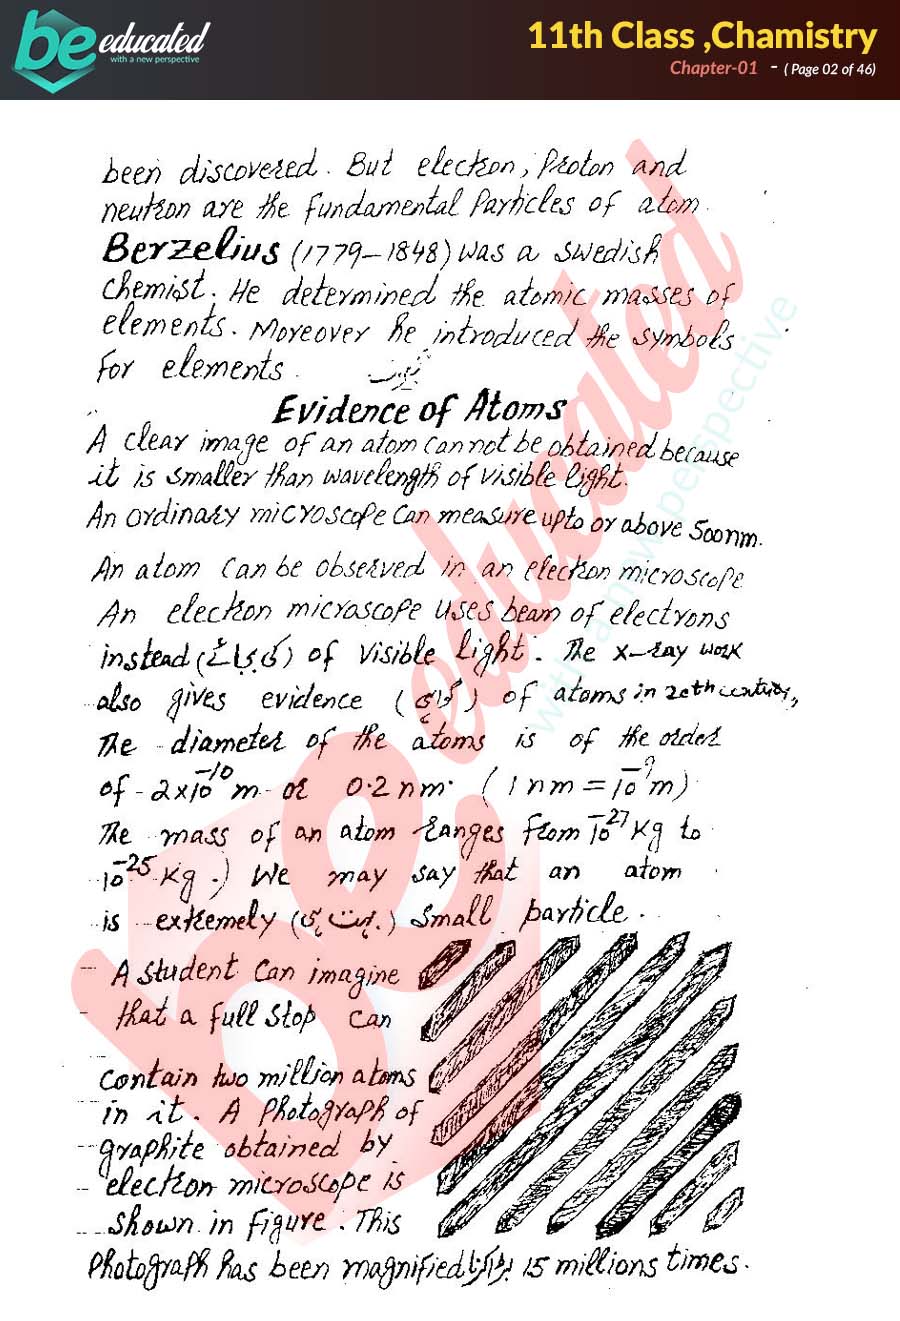 be educated
with a new perspective
11th Class ,Chamistry
Chapter-01 - ( Page 02 of 46)
been discovered. But electron, Proton and
neutron are the fundamental Particles of atom.
Berzelius (1779–1848) was a swedish
chemist. He determined the atomic masses of
elements. Moreover he introduced the symbols
For elements.
ثبوت
Evidence of Atoms
A clear image of an atom cannot be obtained because
it is smaller than wavelength of visible light.
An ordinary microscope can measure upto or above 500nm.
An atom can be observed in an electron microscope
An electron microscope uses beam of electrons
instead (کی بجائے) of visible light. The x-ray work
also gives evidence (گواہی) of atoms in 20th century,
The diameter of the atoms is of the order
of 2x10⁻¹⁰ m or 0.2 nm. (1 nm = 10⁻⁹ m)
The mass of an atom ranges from 10⁻²⁷ Kg to
10⁻²⁵ Kg.) We may say that an atom
is extremely (بہت ہی) small particle.
A student can imagine
that a full stop can
contain two million atoms
in it. A photograph of
graphite obtained by
electron microscope is
shown in figure. This
Photograph has been magnified 15 millions times.
be educated
with a new perspective